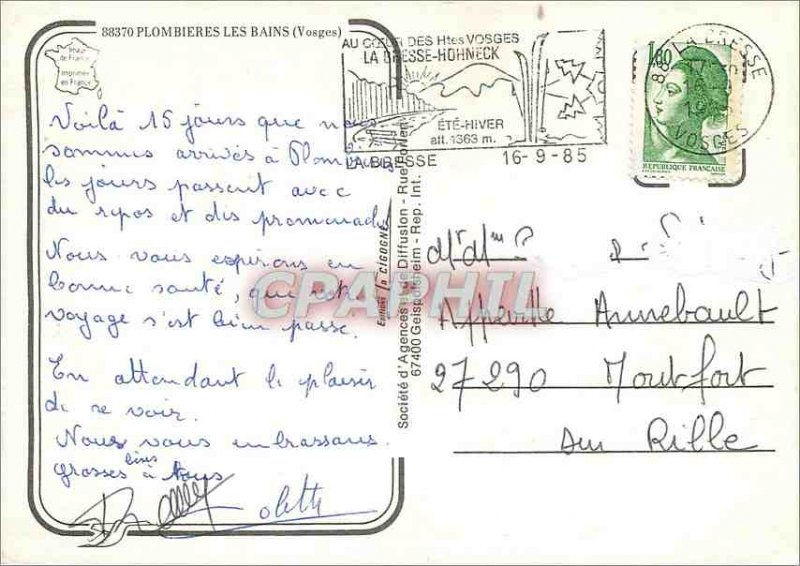 88370 PLOMBIERES LES BAINS (Vosges)
Image de France
Imprimée en France
Voilà 15 jours que nous
sommes arrivés à Plombières
les jours passent avec
du repos et des promenades
Nous vous espérons en
bonne santé, que votre
voyage s'est bien passé.
En attendant le plaisir
de se voir.
Nous vous embrassons.
grosses bises à tous
Colette
AU CŒUR DES Htes VOSGES
LA BRESSE-HOHNECK
ÉTÉ-HIVER
alt. 1363 m.
LA BRESSE
16-9-85
88 LA BRESSE
VOSGES
1,80
REPUBLIQUE FRANÇAISE
Editions la CIGOGNE
Société d'Agences et de Diffusion - Rue
67400 Geispolsheim - Rep. Int.
CPAPHIL
Mr Mme
Appeville Annebault
27290 Montfort
sur Rille